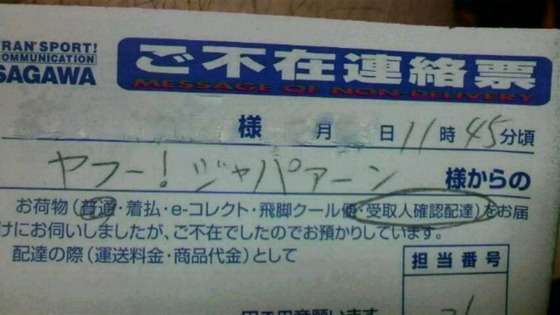 RAN'SPORT!
OMMUNICATION
SAGAWA
ご不在連絡票
MESSAGE OF NON-DELIVERY
様 月 日 11時 45分頃
ヤフー!ジャパァーン 様からの
お荷物(普通・着払・e-コレクト・飛脚クール便・受取人確認配達)をお届
けにお伺いしましたが、ご不在でしたのでお預かりしています。
配達の際(運送料金・商品代金)として
担当番号